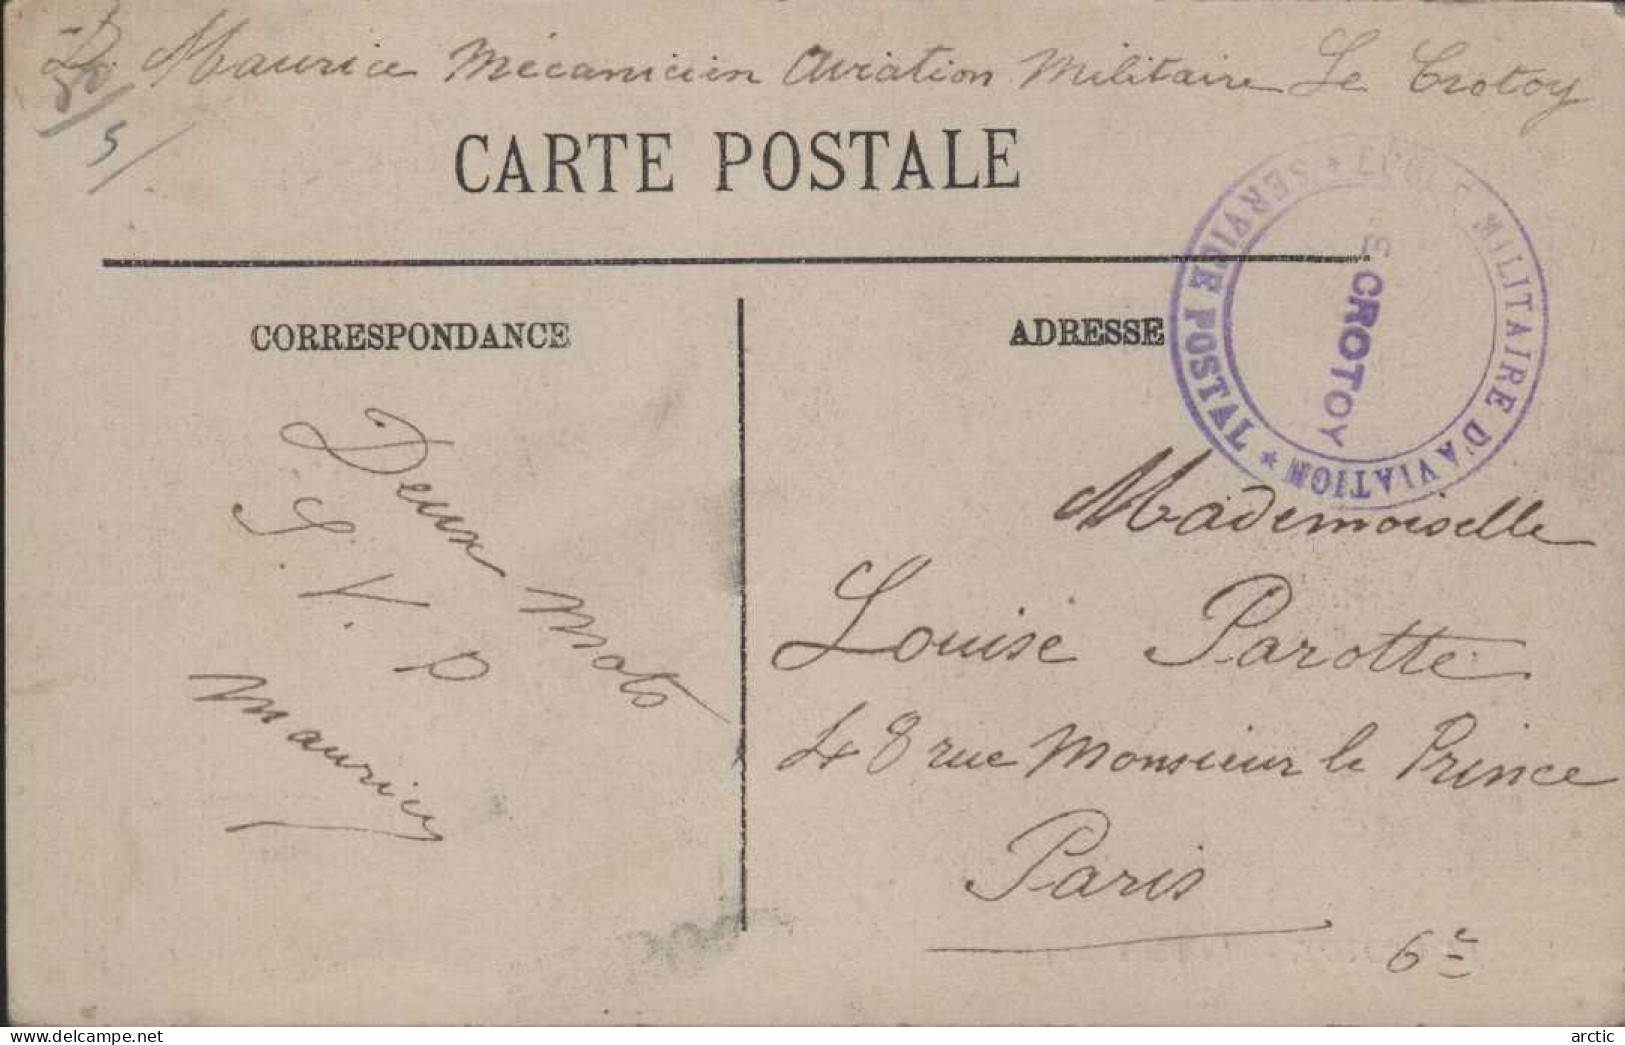 D. Maurice Mécanicien Aviation Militaire Le Crotoy
CARTE POSTALE
ECOLE MILITAIRE D'AVIATION * SERVICE POSTAL *
E CROTOY
CORRESPONDANCE
ADRESSE
Deux Mots
S. V. P
Maurice
Mademoiselle
Louise Parotte
48 rue Monsieur le Prince
Paris
6e
delcampe.net
arctic